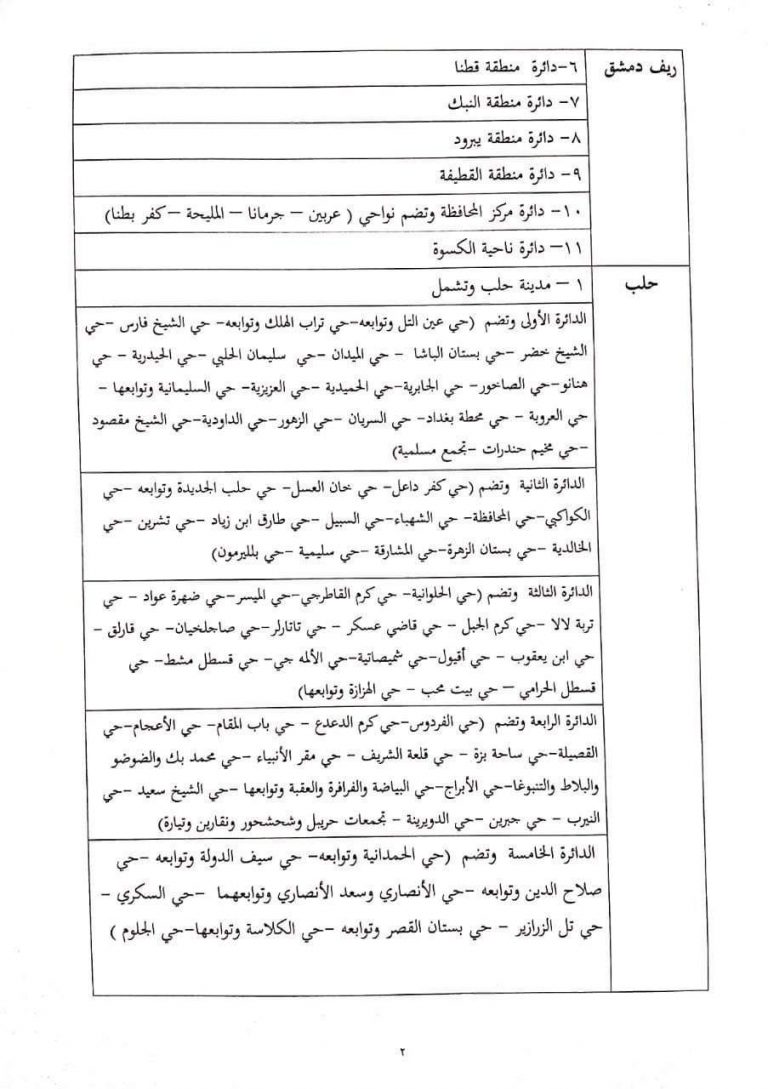 ريف دمشق
٦-دائرة منطقة قطنا
٧- دائرة منطقة النبك
٨- دائرة منطقة يبرود
٩- دائرة منطقة القطيفة
١٠- دائرة مركز المحافظة وتضم نواحي ( عربين – جرمانا – المليحة – كفر بطنا)
١١– دائرة ناحية الكسوة
حلب
١ – مدينة حلب وتشمل
الدائرة الأولى وتضم (حي عين التل وتوابعه-حي تراب الهلك وتوابعه- حي الشيخ فارس -حي
الشيخ خضر -حي بستان الباشا - حي الميدان -حي سليمان الحلبي -حي الحيدرية - حي
هنانو-حي الصاخور- حي الجابرية-حي الحميدية - حي العزيزية- حي السليمانية وتوابعها -
حي العروبة - حي محطة بغداد- حي السريان -حي الزهور-حي الداودية-حي الشيخ مقصود
-حي مخيم حندرات -تجمع مسلمية)
الدائرة الثانية وتضم (حي كفر داعل- حي خان العسل- حي حلب الجديدة وتوابعه -حي
الكواكبي-حي المحافظة- حي الشهباء-حي السبيل -حي طارق ابن زياد -حي تشرين -حي
الخالدية -حي بستان الزهرة-حي المشارقة -حي سليمية -حي بلليرمون)
الدائرة الثالثة وتضم (حي الحلوانية- حي كرم القاطرجي-حي الميسر-حي ضهرة عواد - حي
تربة لالا -حي كرم الجبل - حي قاضي عسكر - حي تاتارلر-حي صاجلخيان-حي قارلق -
حي ابن يعقوب - حي أقيول-حي شميصاتية-حي الألمه جي- حي قسطل مشط- حي
قسطل الحرامي – حي بيت محب - حي الهزازة وتوابعها)
الدائرة الرابعة وتضم (حي الفردوس-حي كرم الدعدع - حي باب المقام- حي الأعجام-حي
القصيلة-حي ساحة بزة - حي قلعة الشريف - حي مقر الأنبياء -حي محمد بك والضوضو
والبلاط والتنبوغا-حي الأبراج-حي البياضة والفرافرة والعقبة وتوابعها -حي الشيخ سعيد -حي
النيرب - حي جبرين -حي الدويرينة - تجمعات حريبل وشحشحور ونقارين وتيارة)
الدائرة الخامسة وتضم (حي الحمدانية وتوابعه- حي سيف الدولة وتوابعه -حي
صلاح الدين وتوابعه -حي الأنصاري وسعد الأنصاري وتوابعهما -حي السكري -
حي تل الزرازير - حي بستان القصر وتوابعه -حي الكلاسة وتوابعها-حي الجلوم )
٢